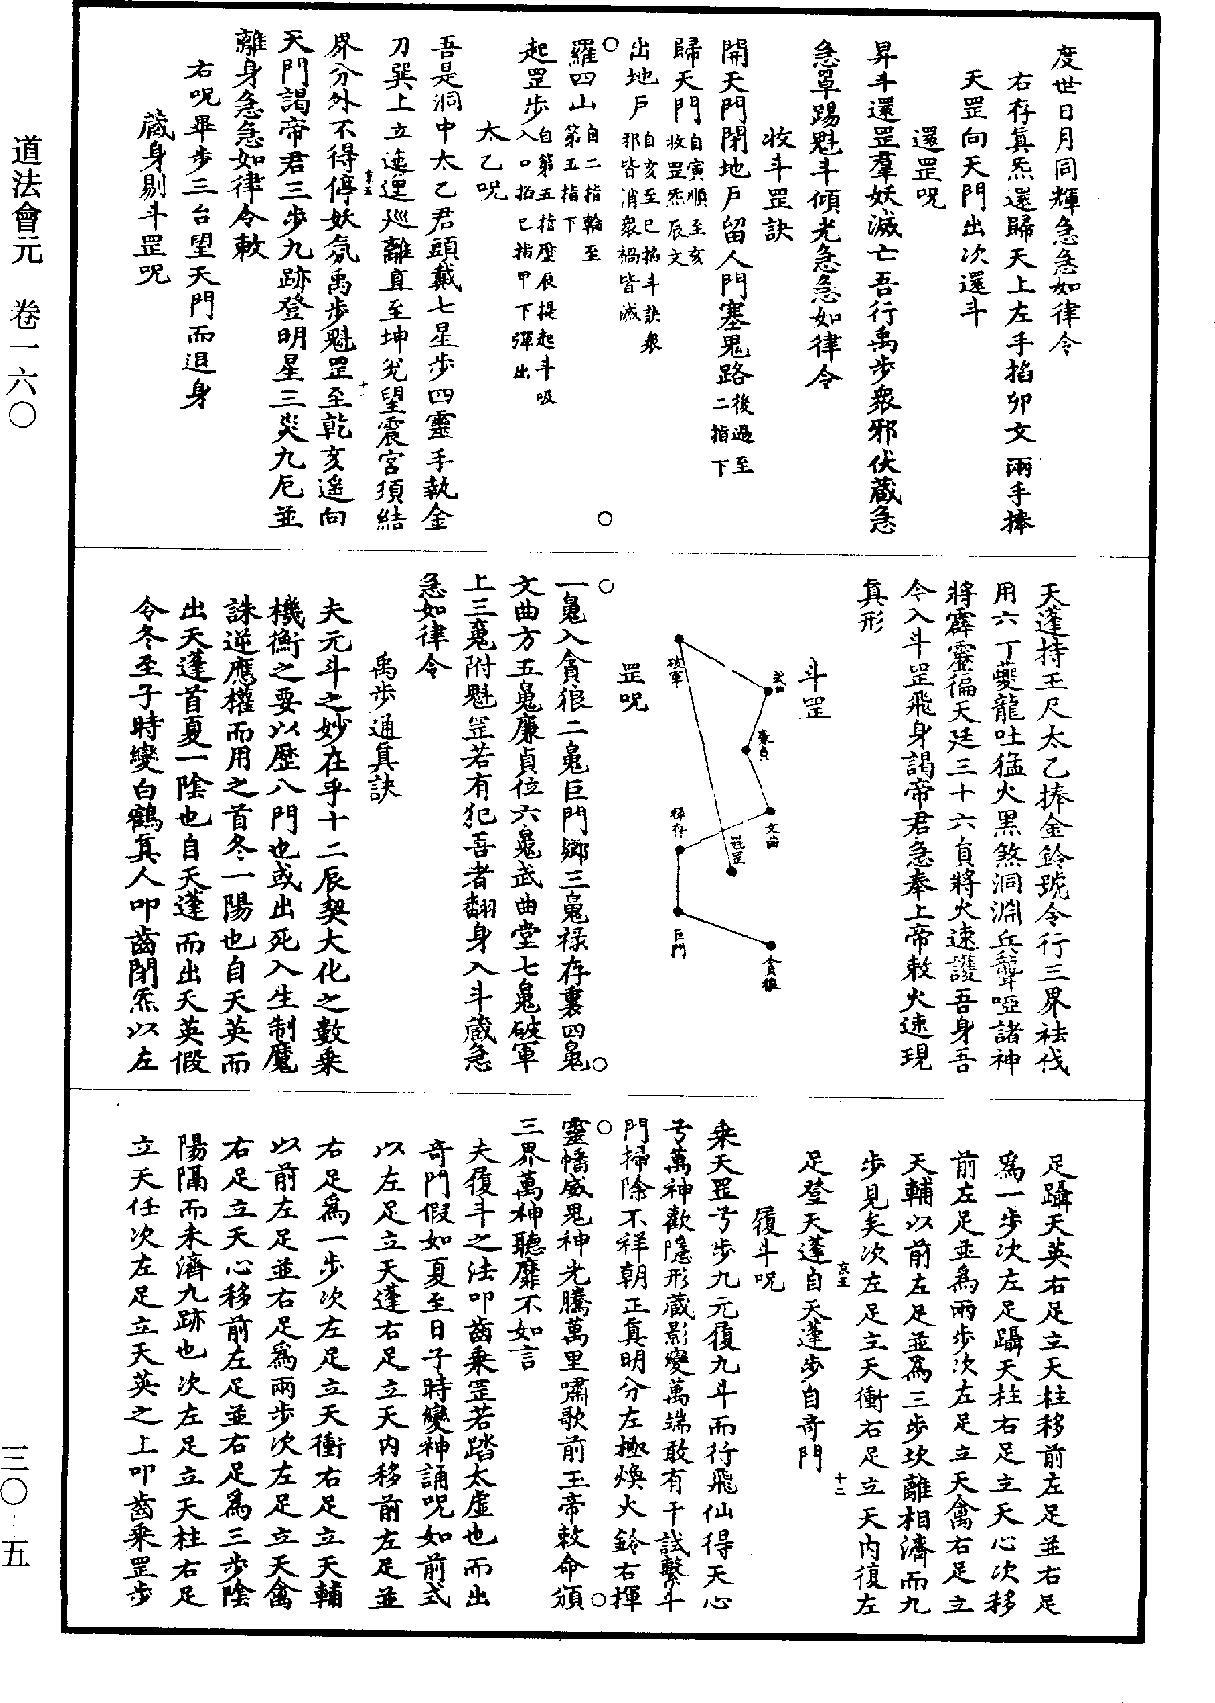 度世日月同輝急急如律令
右存眞炁還歸天上左手掐卯文兩手捧
天罡向天門出次還斗
還罡呪
昇斗還罡羣妖滅亡吾行禹步衆邪伏藏急
急罩踢魁斗傾光急急如律令
收斗罡訣
開天門閉地戶留人門塞鬼路後過至二指下
歸天門自寅順至亥收罡炁辰文
出地戶自亥至巳掐斗訣衆邪皆消衆禍皆滅
羅四山自二指輪至第五指下
起罡步自第五指歷辰提起斗吸入口掐巳指甲下彈出
太乙呪
吾是洞中太乙君頭戴七星步四靈手執金
刀巽上立逡逥巡離直至坤兌望震宮須結
界分外不得停妖氛禹步魁罡至乾亥遙向
天門謁帝君三步九跡登明星三災九厄並
離身急急如律令敕
右呪畢步三台望天門而退身
藏身剔斗罡呪
天蓬持王尺太乙捧金鈴號令行三界祛伐
用六丁夔龍吐猛火黑煞洞淵兵聾啞諸神
將霹靂徧天廷三十六員將火速護吾身吾
令入斗罡飛身謁帝君急奉上帝敕火速現
眞形
斗罡
破軍
武曲
廉貞
文曲
祿存
魁罡
巨門
貪狼
罡呪
一䰢入貪狼二䰢巨門鄉三䰢祿存裏四䰢
文曲方五䰢廉貞位六䰢武曲堂七䰢破軍
上三䰢附魁罡若有犯吾者翻身入斗藏急
急如律令
禹步通眞訣
夫元斗之妙在乎十二辰契大化之數乘
機衡之要以歷八門也或出死入生制魔
誅逆應權而用之首冬一陽也自天英而
出天蓬首夏一陰也自天蓬而出天英假
令冬至子時變白鶴眞人叩齒閉炁以左
足躡天英右足立天柱移前左足並右足
爲一步次左足躡天柱右足立天心次移
前左足並爲兩步次左足立天禽右足立
天輔以前左足並爲三步坎離相濟而九
步見矣次左足立天衝右足立天內復左
足登天蓬自天蓬步自奇門
復斗呪
乘天罡兮步九元復九斗而行飛仙得天心
兮萬神歡隱形藏影變萬端敢有干試繫斗
門掃除不祥朝正眞明分左極煥火鈴右揮
靈幡威鬼神光騰萬里嘯歌前玉帝敕命頒
三界萬神聽靡不如言
夫復斗之法叩齒乘罡若踏太虛也而出
奇門假如夏至日子時變神誦呪如前式
以左足立天蓬右足立天內移前左足並
右足爲一步次左足立天衝右足立天輔
以前左足並右足爲兩步次左足立天禽
右足立天心移前左足並右足爲三步陰
陽隔而未濟九跡也次左足立天柱右足
立天任次左足立天英之上叩齒乘罡步
道法會元　卷一六〇
三〇·五